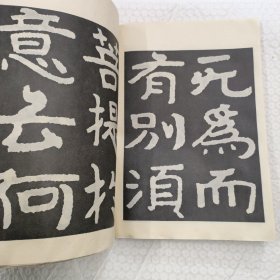 无為而
有別須
菩提扵
意云何